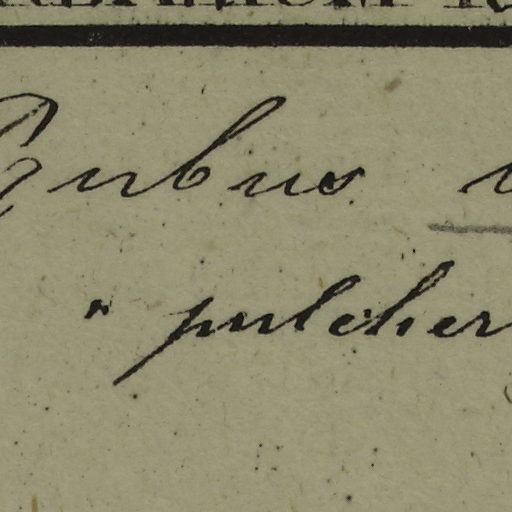 Rubus
" pulcher